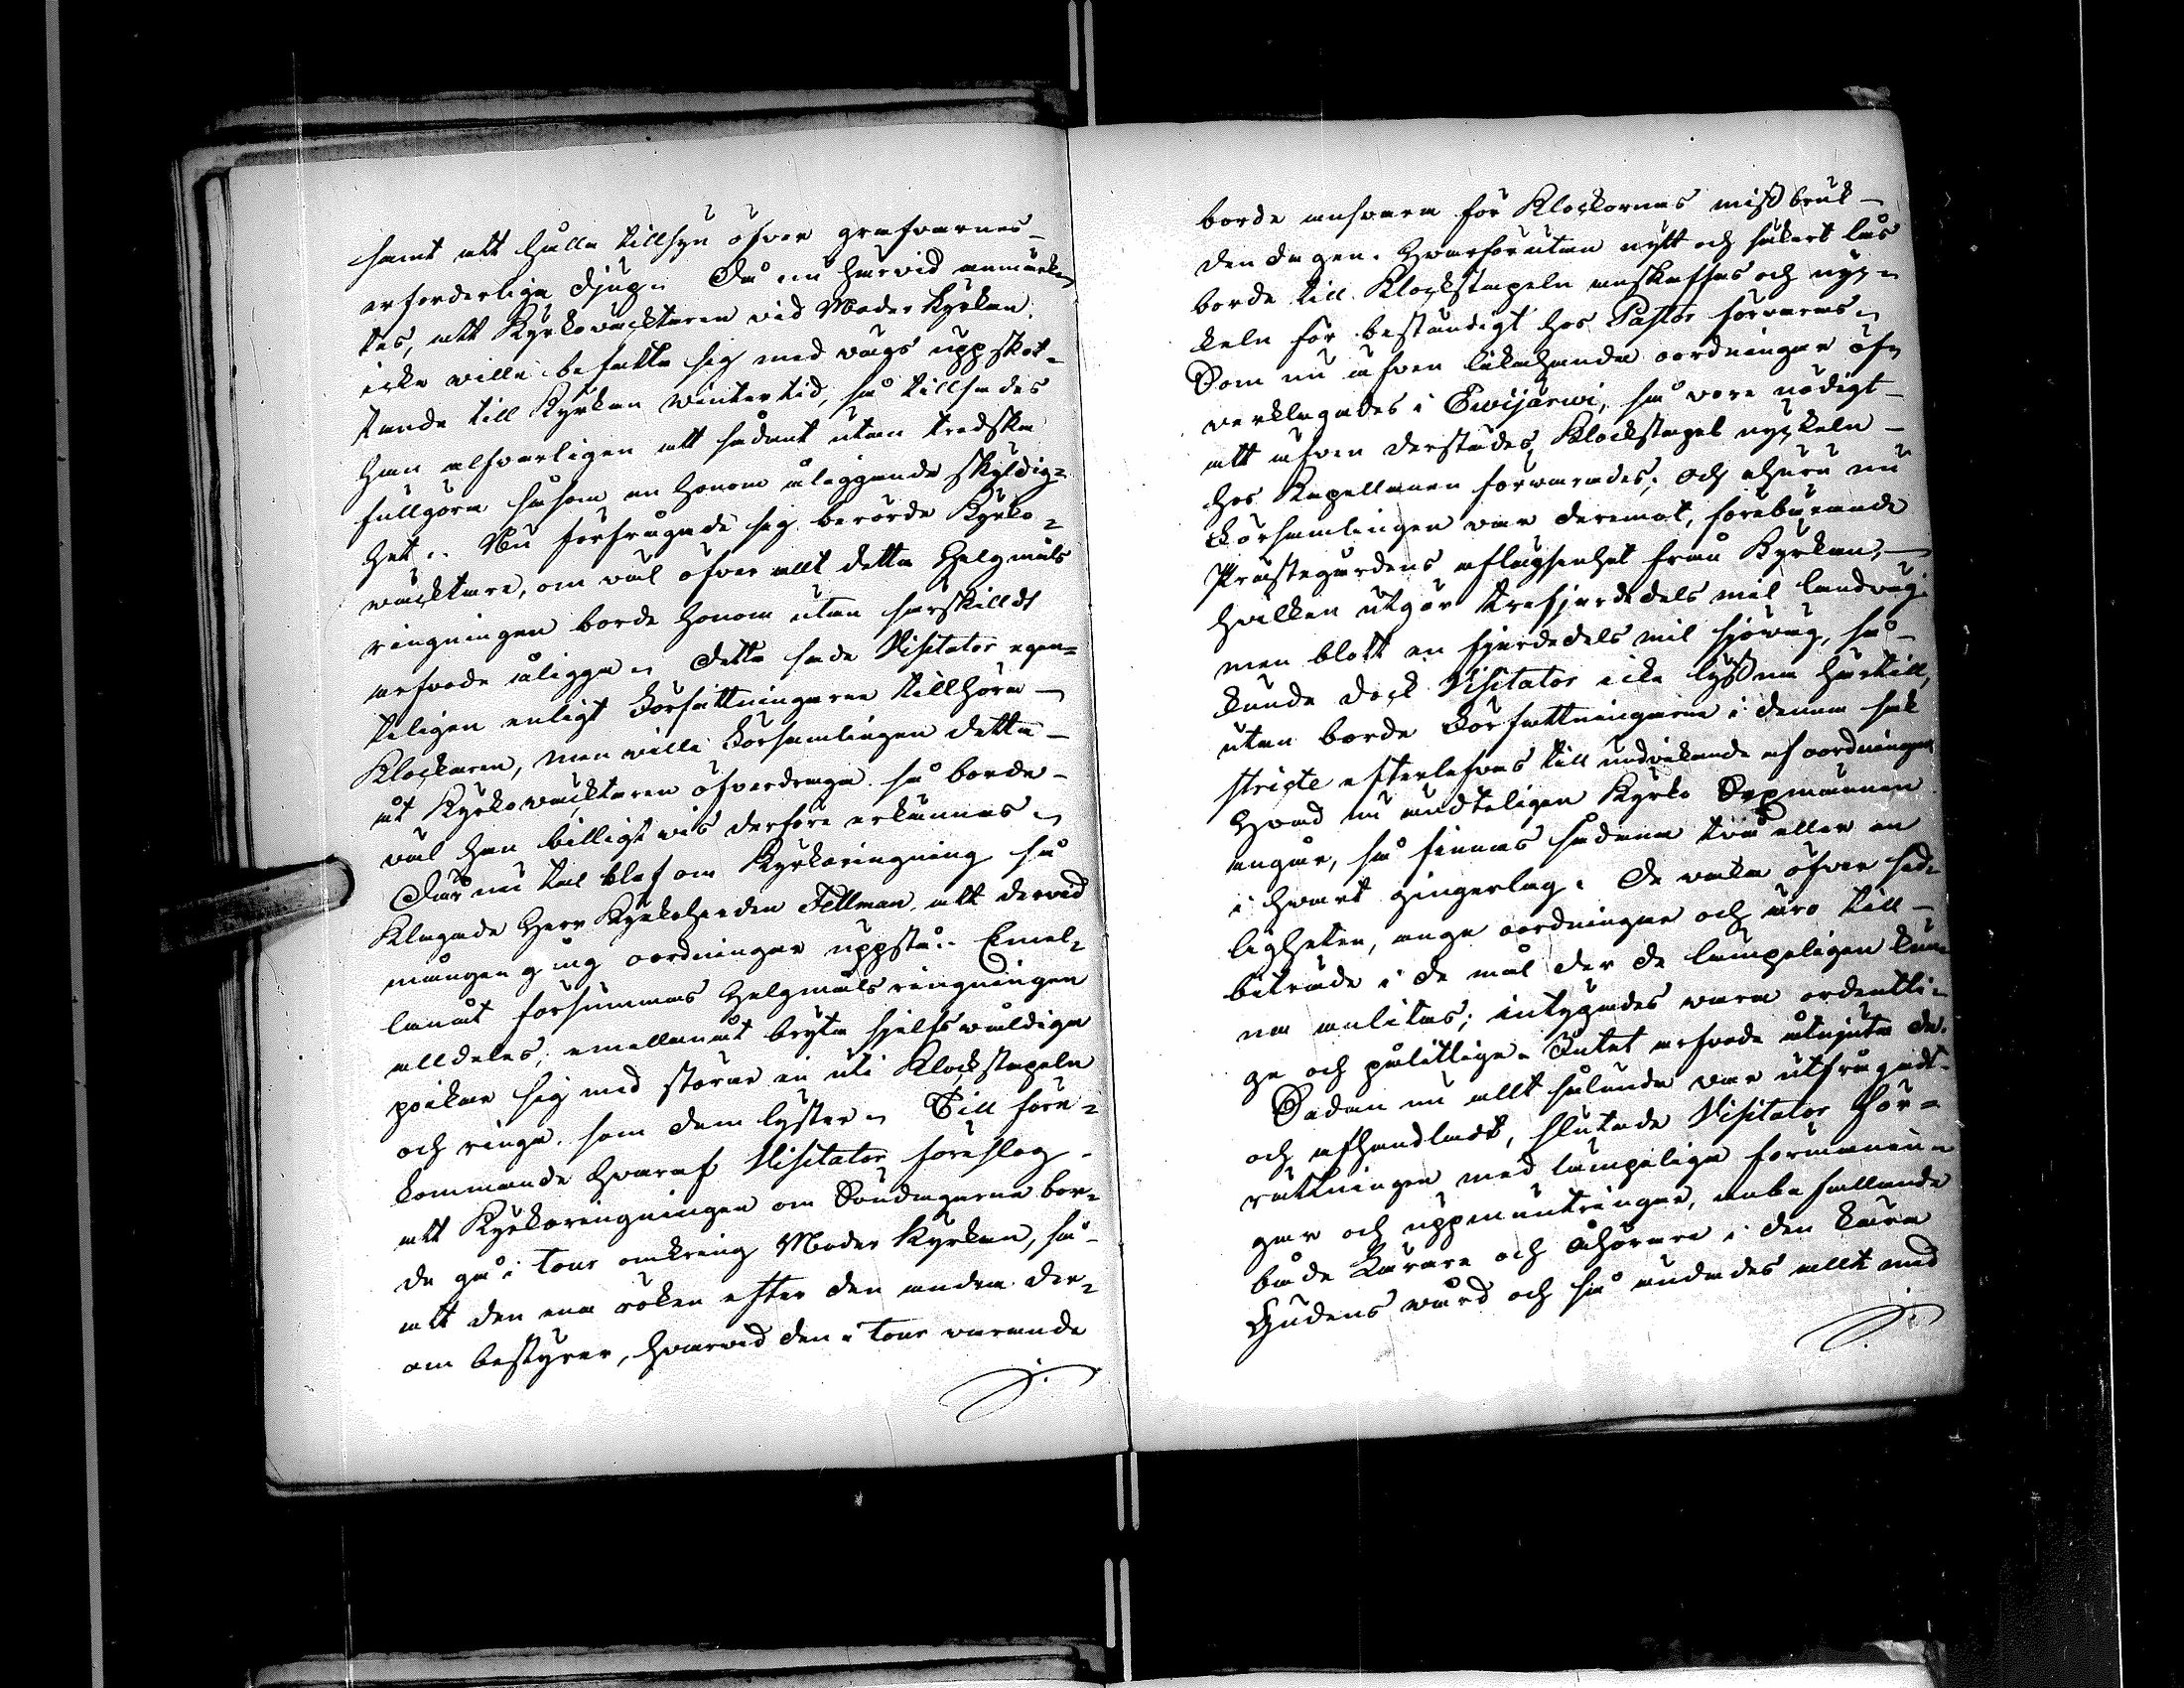 samt att hålla tillsyn öfver grafvarnes
erforderliga djup. Då nu härvid anmärk-
tes, att Kyrkovacktaren vid Moder Kyrkan
icke ville befatta sig med vägs uppskot-
tande till Kyrkan wintertid, så tillsades
han alfvarligen att sådant utan tredska
fullgöra såsom en honom åliggande skyldig-
het. Nu förfrågade sig berörde Kyrko-
wacktare, om väl öfver allt detta Helgmåls
ringningen borde honom utan särskilldt
arfvode åligga. Detta sade Visitator egen-
teligen enligt Författningarne tillhöra
Klockaren, men wille Församlingen detta
åt Kyrkowäcktaren öfverdraga så borde
väl han billigtwis derföre erkännas.
Där nu tal blef om Kyrkoringning så
Klagade Herr Kyrkoherden Fellman, att dervid
mången gång oordningar uppstå. Emel-
lanåt försummas Helgmåls ringningen
alldeles, emellanåt bryta sjelfswåldiga
poikar sig med störar in uti Klockstapeln
och ringa som dem lyster. Till före-
kommande hwaraf Visitator föreslog
att Kyrkoringningen om Söndagarne bor-
de gå i tour omkring Moder Kyrkan, så
att den ena röken efter den andra der-
om bestyrer, hvarvid den i tour varande
borde ansvara för Klockornas missbruk
den dagen. Hvarförutan nytt och säkert lås
borde till Klockstapeln anskaffas och nyc-
keln för beständigt hos Pastor förvaras.
Som nu äfven likahanda oordningar öf-
verklagades i Ewijärwi, så vore nödigt
att äfven derstädes Klockstapel nyckeln
hos Kapellanen förwarades; och ehuru nu
Församlingen var deremot, föreburande
Prästegårdens aflägsenhet från Kyrkan,
hvilken utgör trefjerdedels mil landväg
men blott en fjerdedels mil sjöwäg, så
kunde dock Visitator icke lyssna härtill,
utan borde Författningarne i denna sak
stricte efterlefvas till undvikande af oordningar
Hvad nu ändteligen Kyrko Sexmännen
angår, så finnas sådana två eller en
i hwart gingerlag. De vaka öfver sed-
ligheten, ange oordningar och äro till
biträde i de mål der de lämpeligen kun-
na anlitas; intygades wara ordentli-
ge och pålitlige. Intet arfvode åtnjuta de.
Sedan nu allt sålunda var utfrågadt
och afhandladt, slutade Visitator För-
rättningen med lämpeliga förmanin-
gar och uppmuntringar, anbefallande
både Lärare och Åhörare i den kära
Gudens wård och så ändades allt med